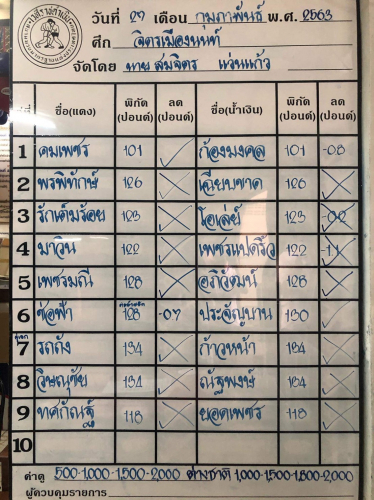 วันที่ 27 เดือน กุมภาพันธ์ พ.ศ. 2563
ศึก จิตรเมืองนนท์
จัดโดย นายสมจิตร แว่นแก้ว
คู่ที่ ชื่อ(แดง) พิกัด (ปอนด์) ลด (ปอนด์) ชื่อ(น้ำเงิน) พิกัด (ปอนด์) ลด (ปอนด์)
1 คมเพชร 101 ก้องมงคล 101 -0.8
2 พรพิทักษ์ 126 เฉียบขาด 126
3 รักเต็มร้อย 123 โอเล่ย์ 123 -0.2
4 มาวิน 122 เพชรแปดริ้ว 122 -1.1
5 เพชรมณี 128 อภิวัฒน์ 128
6 ช่อฟ้า 128 -0.7 ประจัญบาน 130
7 รถถัง 134 ก้าวหน้า 134
8 วิษณุชัย 134 ณัฐพงษ์ 134
9 ทศกัณฐ์ 118 ยอดเพชร 118
10
ค่าดู 500-1,000-1,500-2,000 ต่างชาติ 1,000-1,500-1,800-2,000
ผู้ควบคุมรายการ